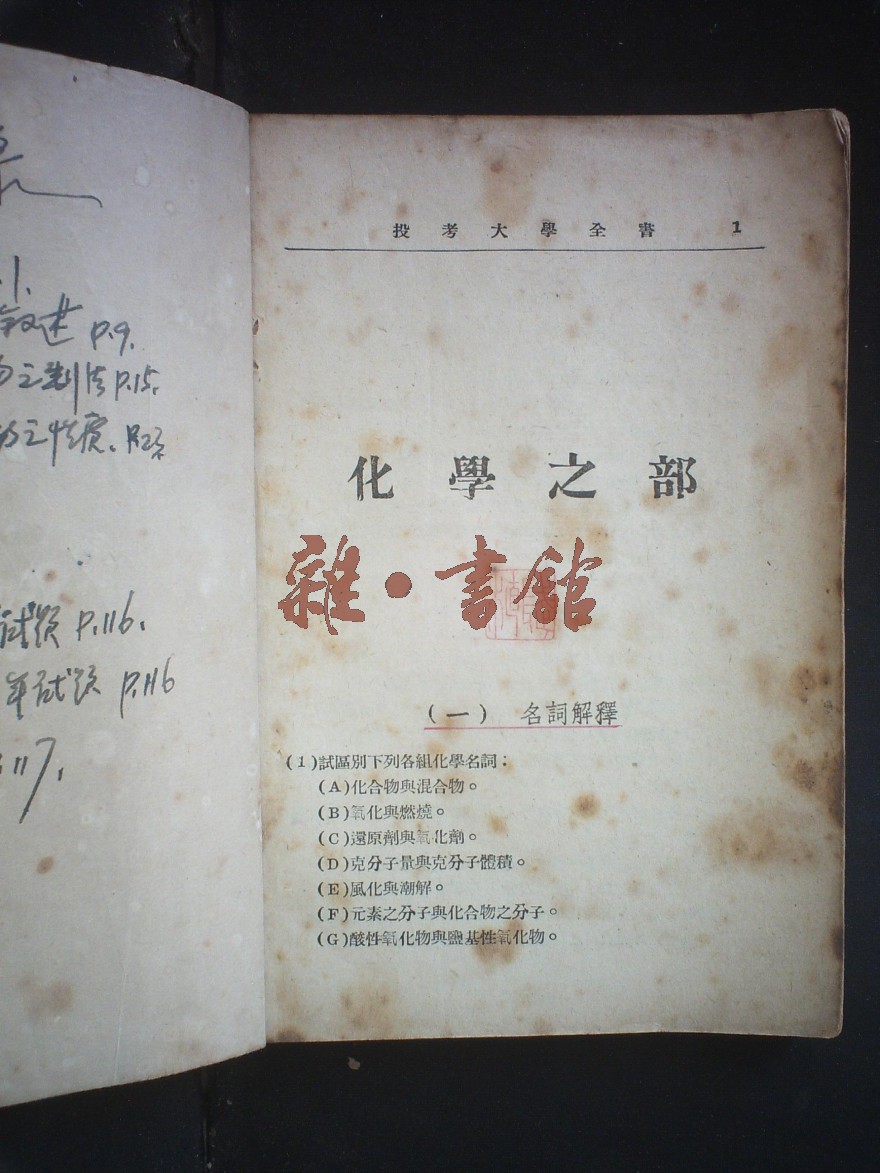 敘述 P.9.
之制法 P.15.
之性質. P.23
試題 P.116.
年試題 P.116
117.
投考大學全書 1
化學之部
雜·書館
(一) 名詞解釋
(1)試區別下列各組化學名詞：
(A)化合物與混合物。
(B)氧化與燃燒。
(C)還原劑與氧化劑。
(D)克分子量與克分子體積。
(E)風化與潮解。
(F)元素之分子與化合物之分子。
(G)酸性氧化物與鹽基性氧化物。